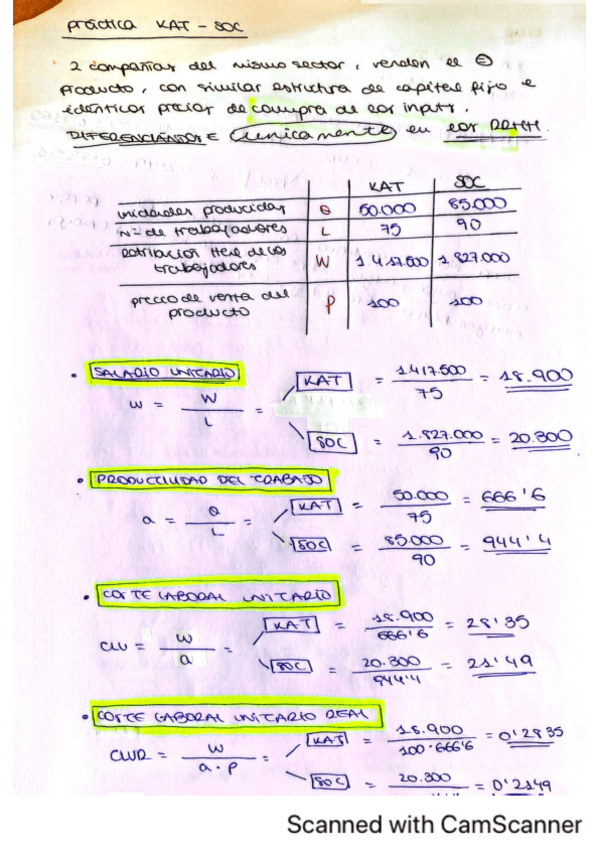 práctica KAT - SOC
2 compañías del mismo sector, venden el ⊜
producto, con similar estructura de capital fijo e
idénticos precios de compra de los inputs.
DIFERENCIÁNDOSE únicamente en los RRHH.
KAT SOC
unidades producidas Q 50.000 85.000
Nº de trabajadores L 75 90
retribución total de los trabajadores W 1.417.500 1.827.000
precio de venta del producto P 100 100
• SALARIO UNITARIO
w = W / L = KAT = 1.417.500 / 75 = 18.900
SOC = 1.827.000 / 90 = 20.300
• PRODUCTIVIDAD DEL TRABAJO
a = Q / L = KAT = 50.000 / 75 = 666'6
SOC = 85.000 / 90 = 944'4
• COSTE LABORAL UNITARIO
CLU = w / a = KAT = 18.900 / 666'6 = 28'35
SOC = 20.300 / 944'4 = 21'49
• COSTE LABORAL UNITARIO REAL
CLUR = w / a · P = KAT = 18.900 / 100·666'6 = 0'2835
SOC = 20.300 = 0'2149
Scanned with CamScanner